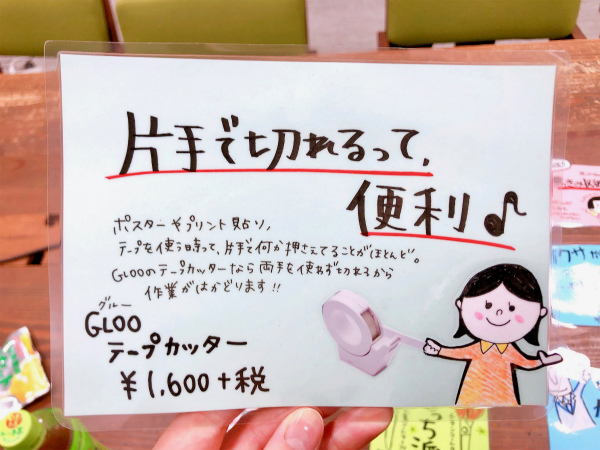 片手で切れるって、
便利♪
ポスターやプリント貼り、
テープを使う時って、片手で何か押さえてることがほとんど。
GLOOのテープカッターなら両手を使わず切れるから
作業がはかどります!!
グルー
GLOO
テープカッター
¥1,600+税